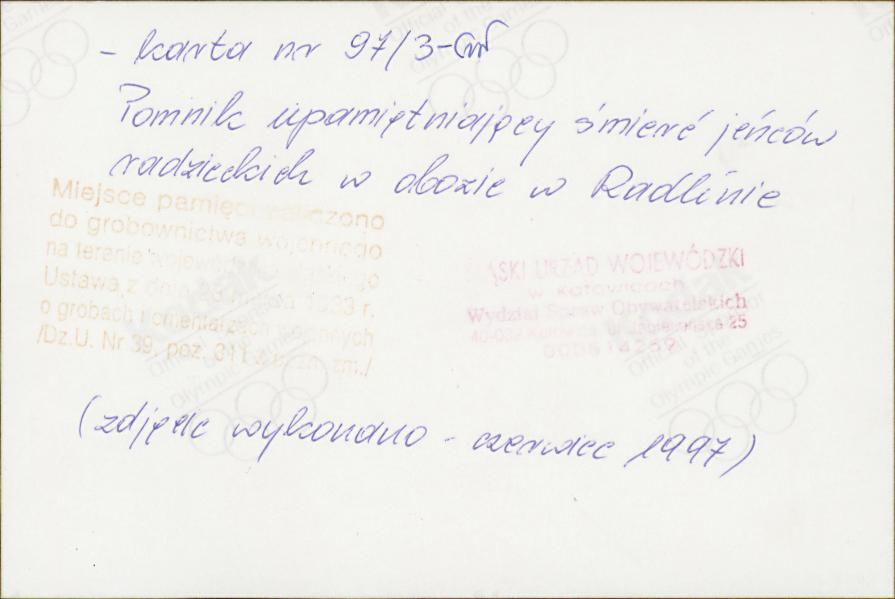 - karta nr 97/3-GW
Pomnik upamiętniający śmierć jeńców
radzieckich w obozie w Radlinie
Miejsce pamięci zaliczono
do grobownictwa wojennego
na terenie województwa
Ustawa z dnia 28 marca 1933 r.
o grobach i cmentarzach wojennych
/Dz.U. Nr 39, poz. 311 z zm./
ŚLĄSKI URZĄD WOJEWÓDZKI
w Katowicach
Wydział Spraw Obywatelskich
40-032 Katowice, ul. Jagiellońska 25
(zdjęcie wykonano - czerwiec 1997)
Kodak
Official Sponsor
of the
Olympic Games